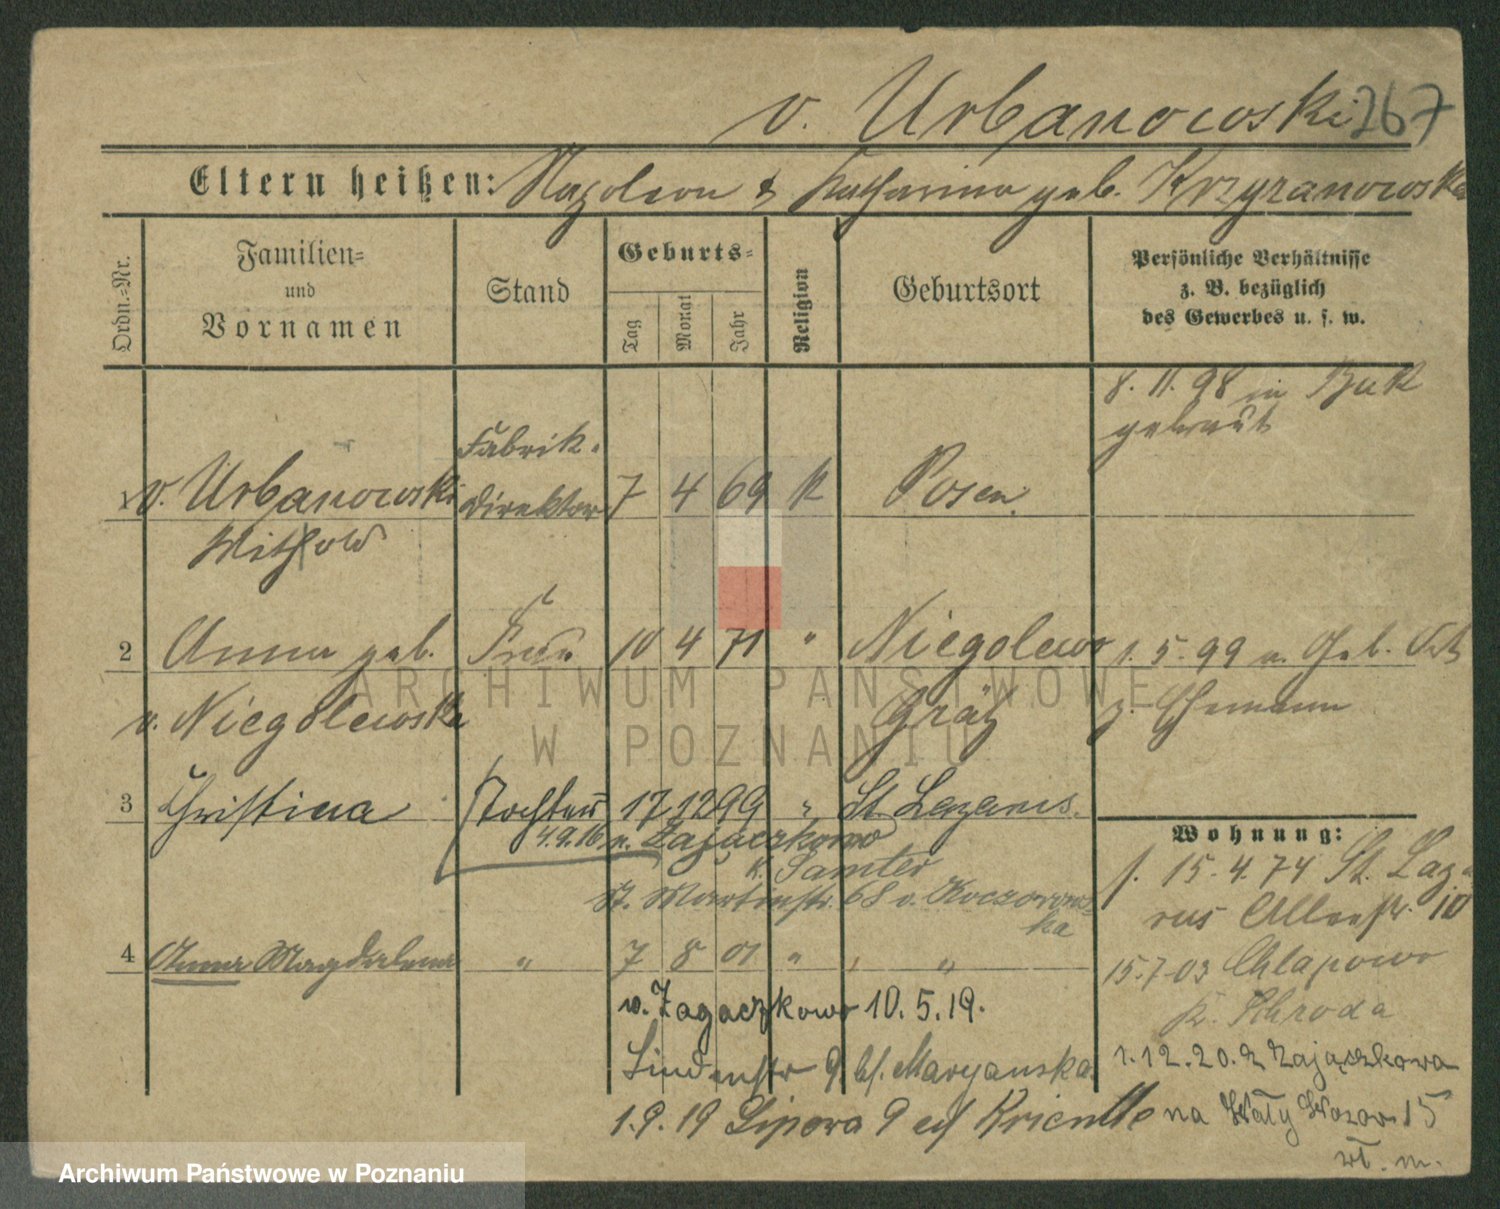 v. Urbanowski 267
Eltern heißen: Napoleon & Katharina geb. Krzyzanowska
Ordn.=Nr.
Familien=
und
Vornamen
Stand
Geburts=
Tag
Monat
Jahr
Religion
Geburtsort
Persönliche Verhältnisse
z. B. bezüglich
des Gewerbes u. s. w.
8. 11. 98 in Buk
getraut
Fabrik-
1 v. Urbanowski direktor 7 4 69 k Posen
Withold
2 Anna geb. Frau 10 4 71 " Niegolewo 1. 5. 99 v. Geb. Ort
v. Niegolewska Grätz z. Ehemann
3 Christina Tochter 17 12 99 " St. Lazarus.
4.9.16 n. Zajaczkowo
k. Samter
St. Martinstr. 68 v. Koczorows-
ka
Wohnung:
f. 15. 4. 74 St. Laza
rus 10
4 Anna Magdalena " 7 8 01 " "
15.7.03 Chlapowo
k. Schroda
v. Zagaczkowo 10. 5. 19.
Lindenstr 9 bf. Maryanska
1.9.19 Lipowa 9
1.12.20. z Zajączkowa
na Wały 15
wł. m.
ARCHIWUM PAŃSTWOWE
W POZNANIU
Archiwum Państwowe w Poznaniu